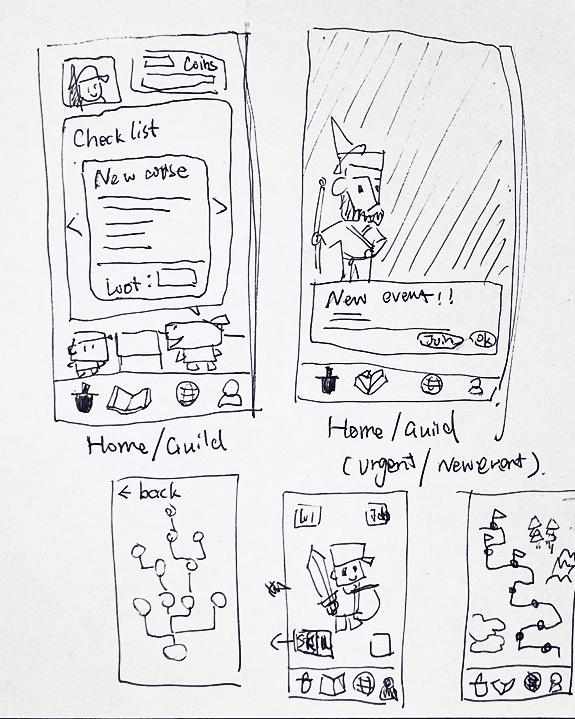 Coins
Check list
New course
Loot:
New event!!
Join
Ok
Home/Guild
Home/Guild
(Urgent/New event).
← back
Lv1
Job